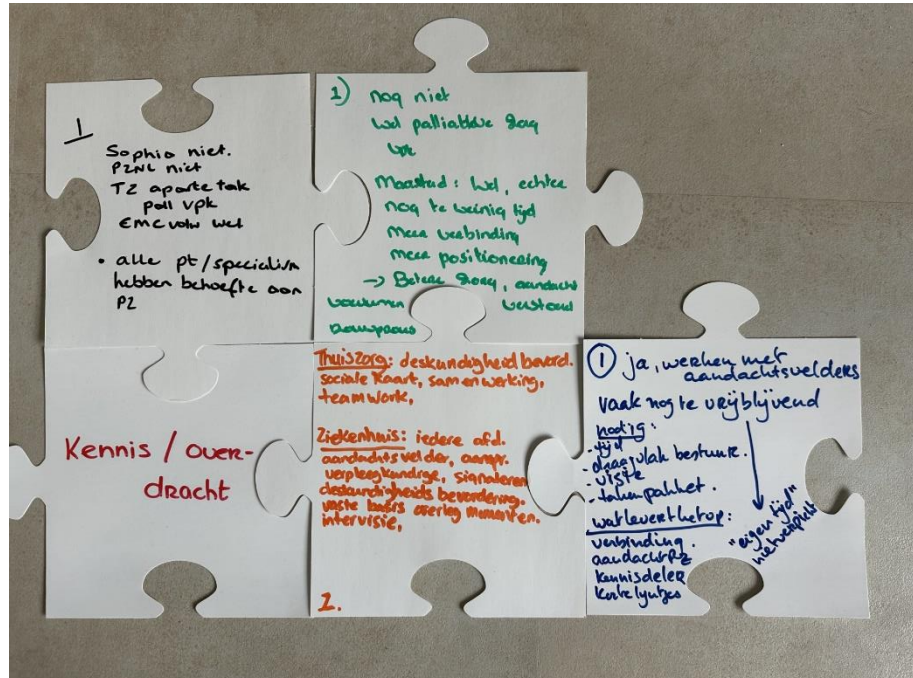 1
Sophia niet.
PZNL niet
TZ aparte tak
pall vpk
EMC volw wel
• alle pt/specialism
hebben behoefte aan
PZ
1) nog niet
wel palliatieve zorg
vpk
Maasstad: wel, echter
nog te weinig tijd
meer verbinding
meer positionering
→ Betere zorg, aandacht
Kennis / over-
dracht
Thuiszorg: deskundigheid bevord.
sociale kaart, samenwerking,
teamwork,
Ziekenhuis: iedere afd.
aandachtsvelder, aanspr.
verpleegkundige, signaleren
deskundigheids bevordering.
vaste basis overleg momenten.
intervisie,
1.
1 ja, werken met
aandachtsvelders
vaak nog te vrijblijvend
nodig:
- tijd
- draagvlak bestuur.
- visie
- takenpakket.
wat levert het op:
verbinding.
aandacht PZ
kennisdelen
korte lyntjes
"eigen tijd"
niet verplicht